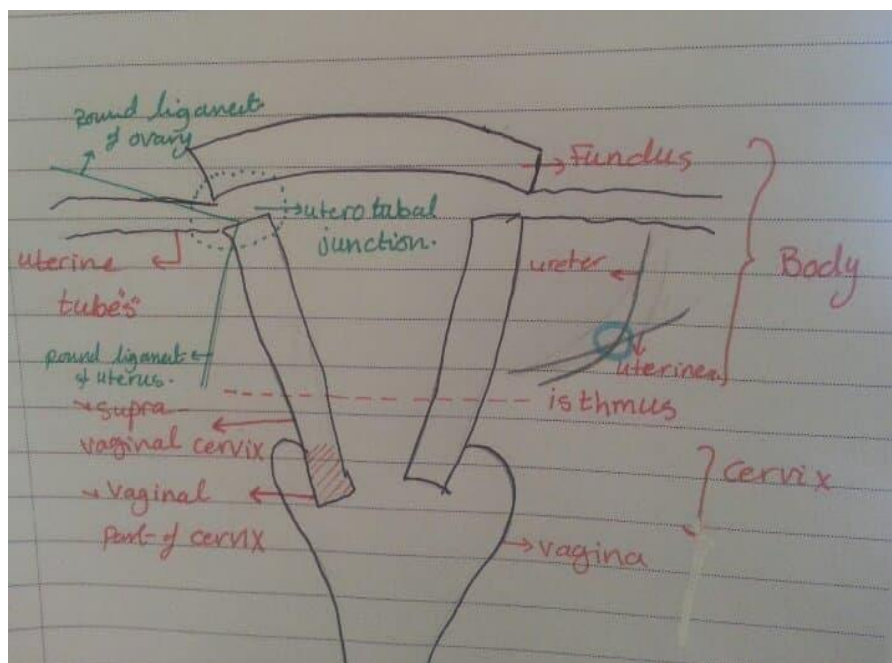 round ligament
of ovary
Fundus
utero tubal
junction.
uterine
tube"s"
ureter
Body
round ligament
of uterus.
uterine a.
isthmus
supra
vaginal cervix
vaginal
part of cervix
cervix
vagina